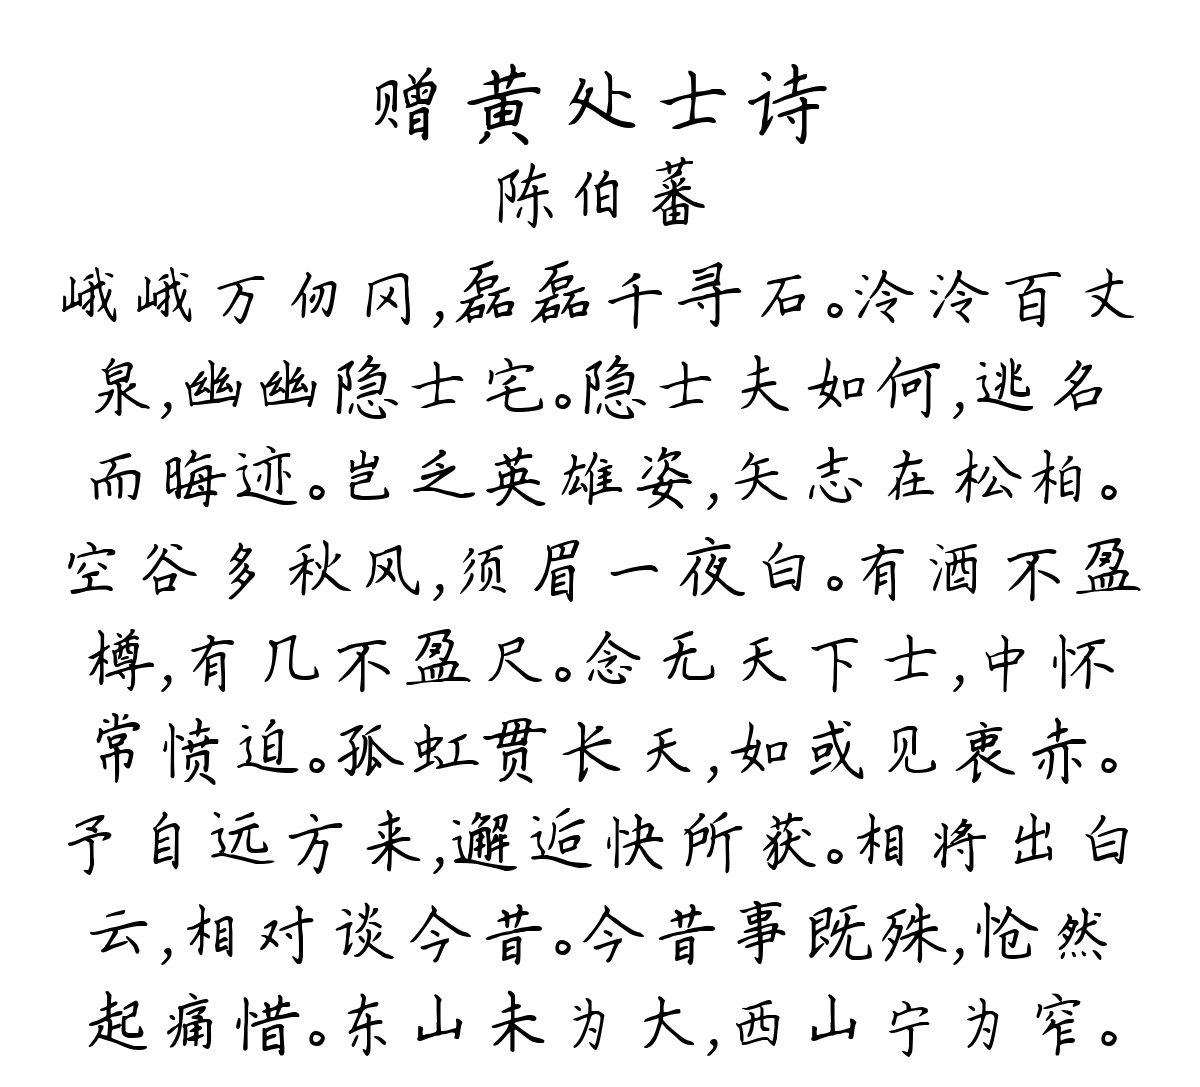 赠黄处士诗
陈伯蕃
峨峨万仞冈,磊磊千寻石。泠泠百丈
泉,幽幽隐士宅。隐士夫如何,逃名
而晦迹。岂乏英雄姿,矢志在松柏。
空谷多秋风,须眉一夜白。有酒不盈
樽,有几不盈尺。念无天下士,中怀
常愤迫。孤虹贯长天,如或见衷赤。
予自远方来,邂逅快所获。相将出白
云,相对谈今昔。今昔事既殊,怆然
起痛惜。东山未为大,西山宁为窄。